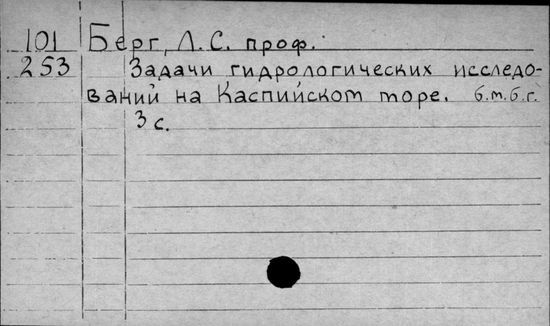 101 Берг, Л.С. проф.
253 Задачи гидрологических исследо-
ваний на Каспийском море. б.м.б.г.
3 с.